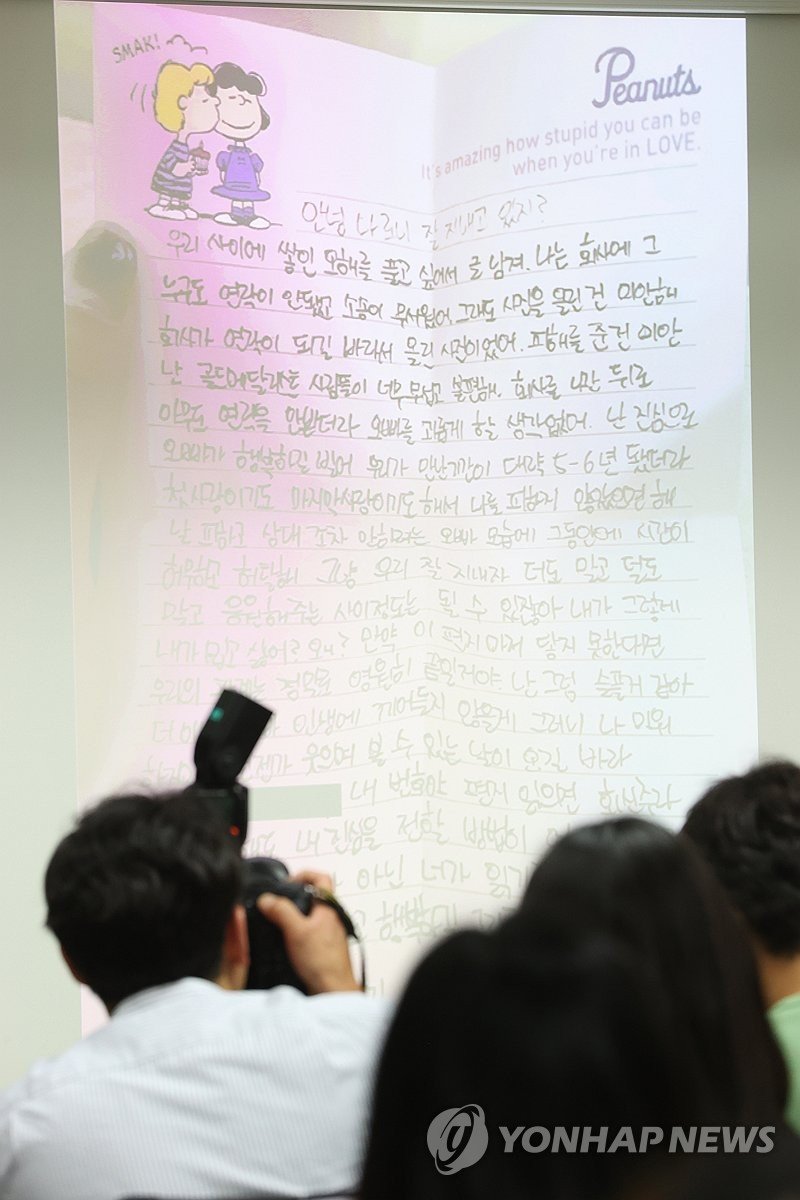 SMAK!
Peanuts
It's amazing how stupid you can be
when you're in LOVE.
안녕 나르니 잘 지내고 있지?
우리 사이에 쌓인 오해를 풀고 싶어서 글 남겨. 나는 회사에 그
누구도 연락이 안됐고 소송이 무서웠어. 그래도 시민을 울린 건 미안해
회사가 연락이 되길 바라서 올린 사진이었어. 피해를 준건 미안
난 골드메달리스트 사람들이 너무 무섭고 불편해. 회사를 나간 뒤로
아무도 연락을 안받더라 오빠를 괴롭게 할 생각없어. 난 진심으로
오빠가 행복하길 빌어 우리가 만난기간이 대략 5-6년 됐더라
첫사랑이기도 마지막사랑이기도 해서 나를 피하지 않았으면 해
날 피하고 상대 조차 안하려는 오빠 모습에 그동안에 시간이
허무하고 허탈해 그냥 우리 잘 지내자 더도 말고 덜도
말고 응원해주는 사이정도는 될 수 있잖아 내가 그렇게
내가 밉고 싫어? 왜? 만약 이 편지마저 닿지 못한다면
우리의 관계는 정말로 영원히 끝일거야. 난 그럼 슬플거 같아
더 인생에 끼어들지 않을게 그러니 나 미워
웃으며 볼 수 있는 날이 오길 바라
내 번호야 편지 읽으면 회신주라
내 진심을 전할 방법이
아닌 너가 읽기
행복
YONHAP NEWS